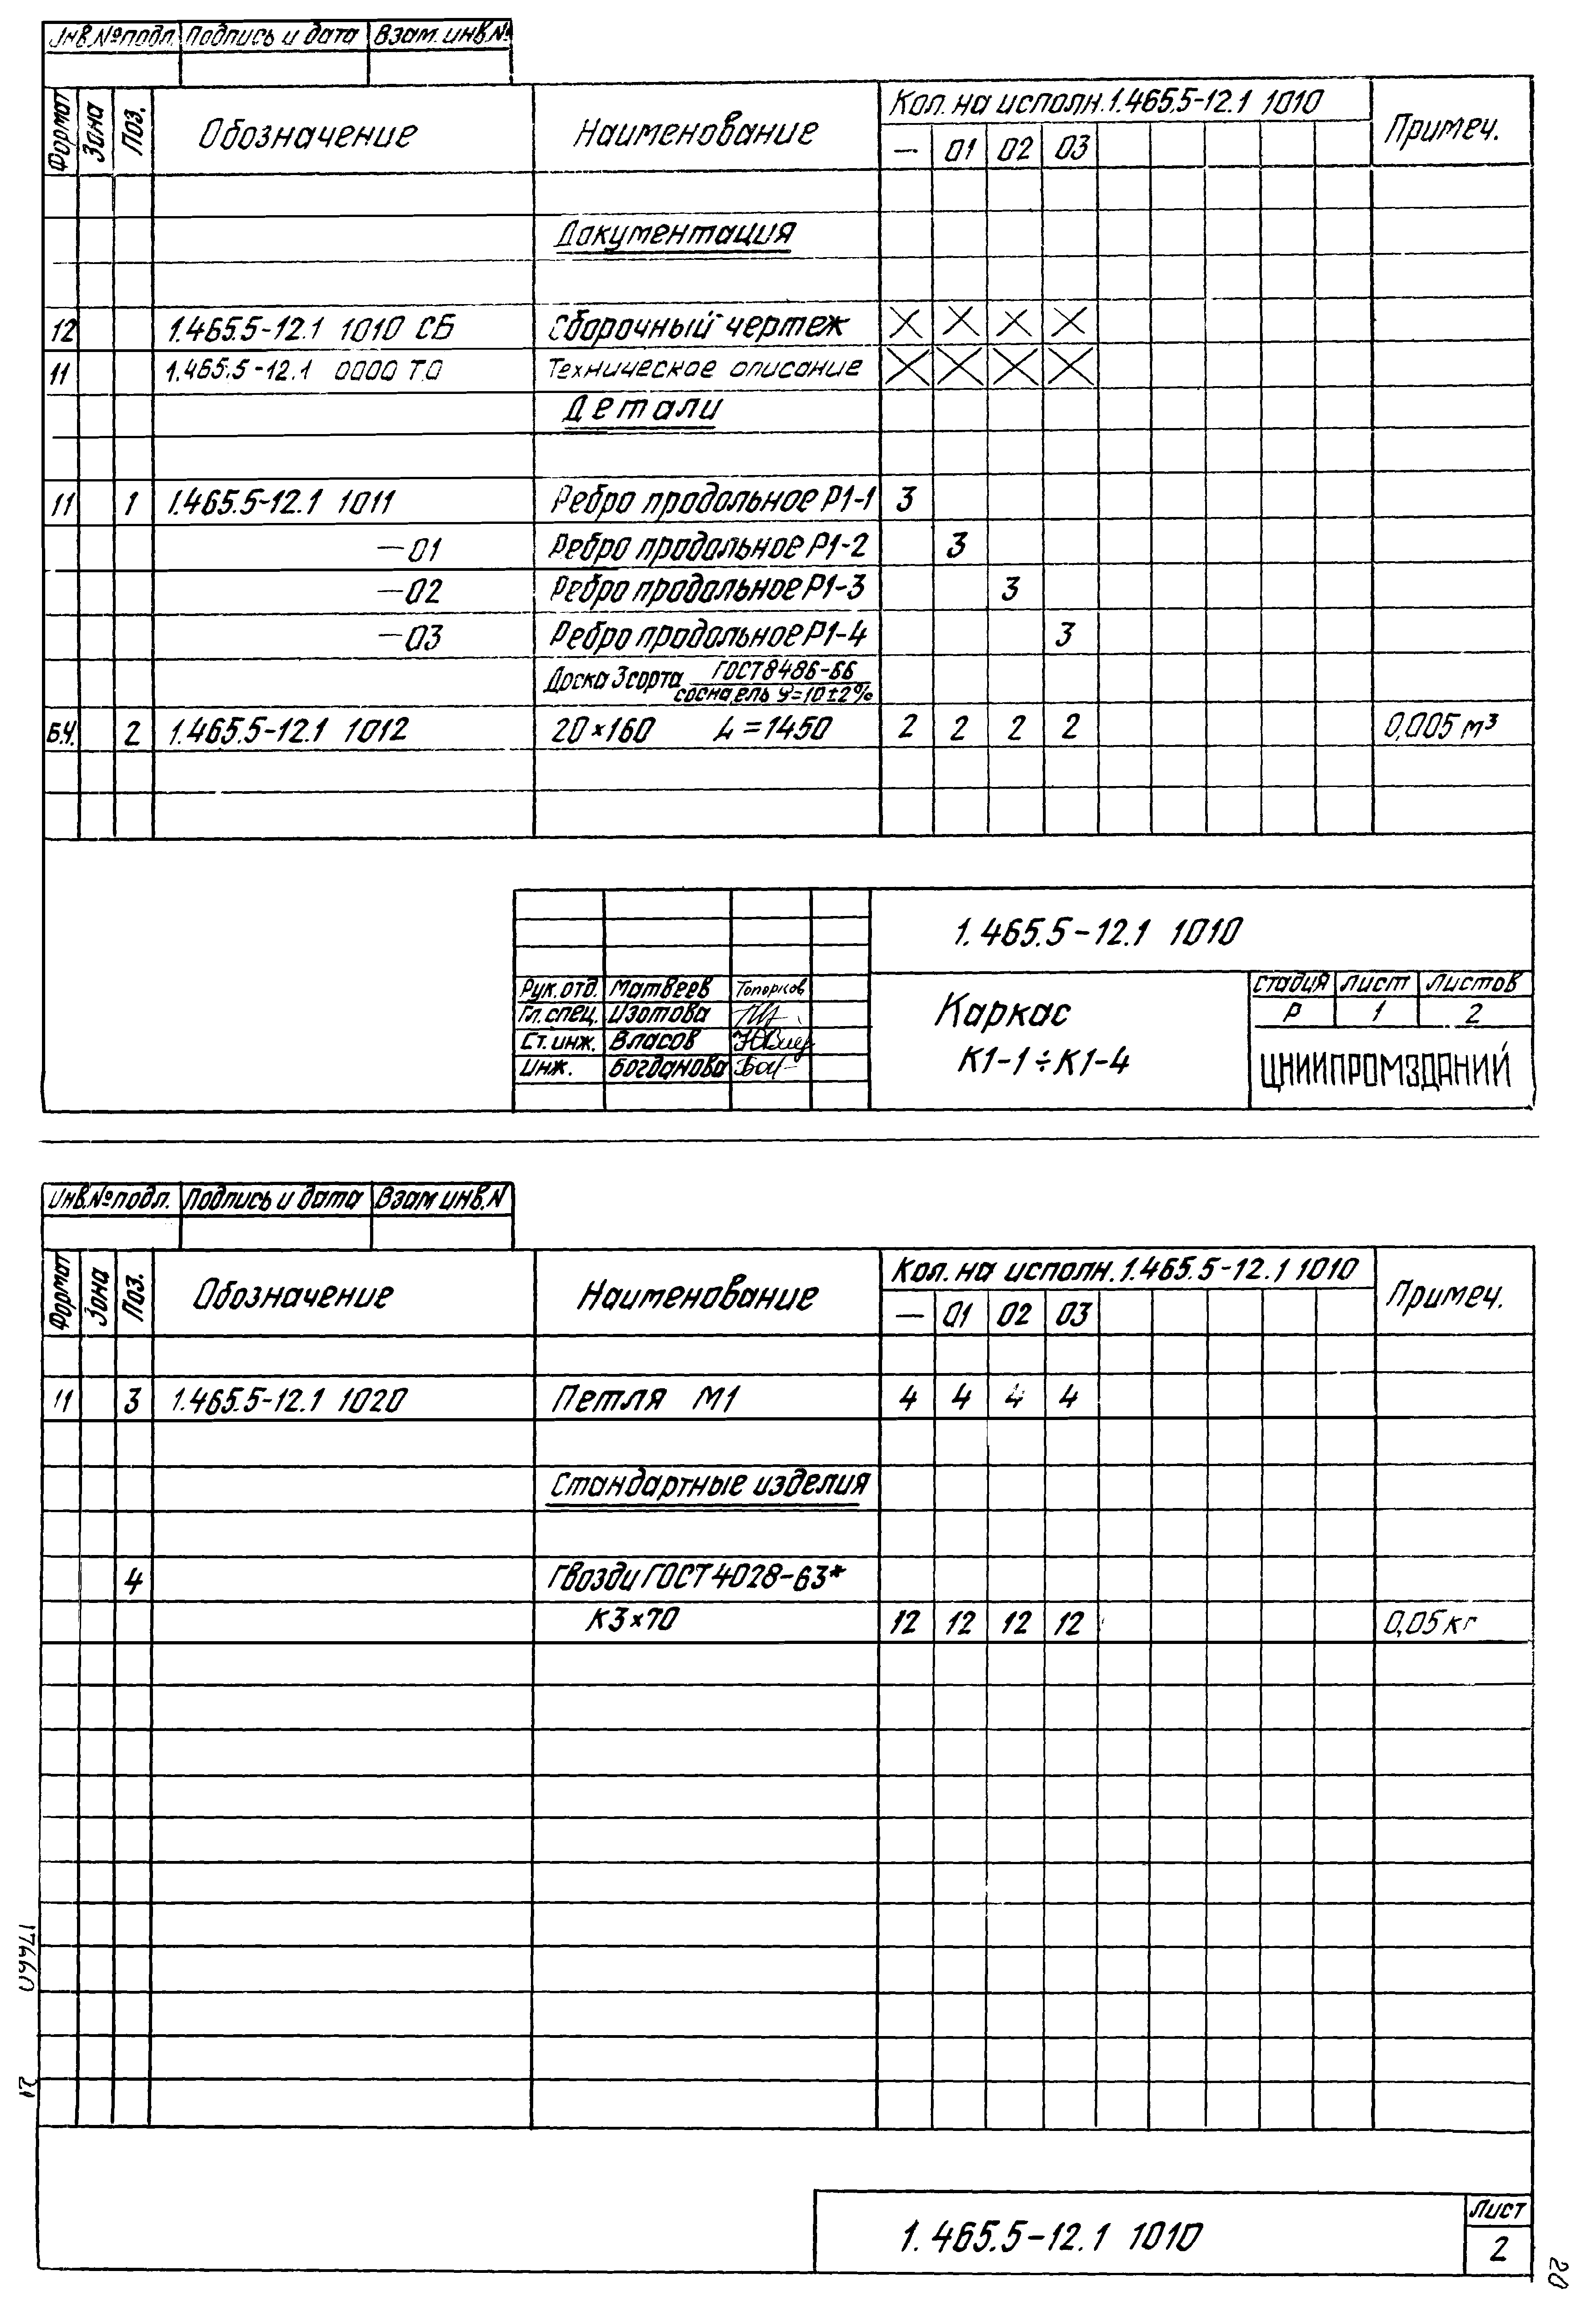 Инв.№подл. Подпись и дата Взам. инв.№
Формат Зона Поз. Обозначение Наименование Кол. на исполн. 1.465.5-12.1 1010 Примеч.
— 01 02 03
Документация
12 1.465.5-12.1 1010 СБ Сборочный чертеж X X X X
11 1.465.5-12.1 0000 ТО Техническое описание X X X X
Детали
11 1 1.465.5-12.1 1011 Ребро продольное Р1-1 3
—01 Ребро продольное Р1-2 3
—02 Ребро продольное Р1-3 3
—03 Ребро продольное Р1-4 3
Доска 3сорта ГОСТ 8486-66
сосна, ель =10±2%
Б.Ч. 2 1.465.5-12.1 1012 20×160 L=1450 2 2 2 2 0,005 м³
1.465.5-12.1 1010
Рук.отд. Матвеев Топорков
Гл.спец. Изотова
Ст.инж. Власов
Инж. Богданова
Каркас
К1-1÷К1-4
Стадия Лист Листов
Р 1 2
ЦНИИПРОМЗДАНИЙ
Инв.№подл. Подпись и дата Взам инв.N
Формат Зона Поз. Обозначение Наименование Кол. на исполн. 1.465.5-12.1 1010 Примеч.
— 01 02 03
11 3 1.465.5-12.1 1020 Петля М1 4 4 4 4
Стандартные изделия
4 Гвозди ГОСТ 4028-63*
К3×70 12 12 12 12 0,05кг
17660 21
1.465.5-12.1 1010
Лист
2
20